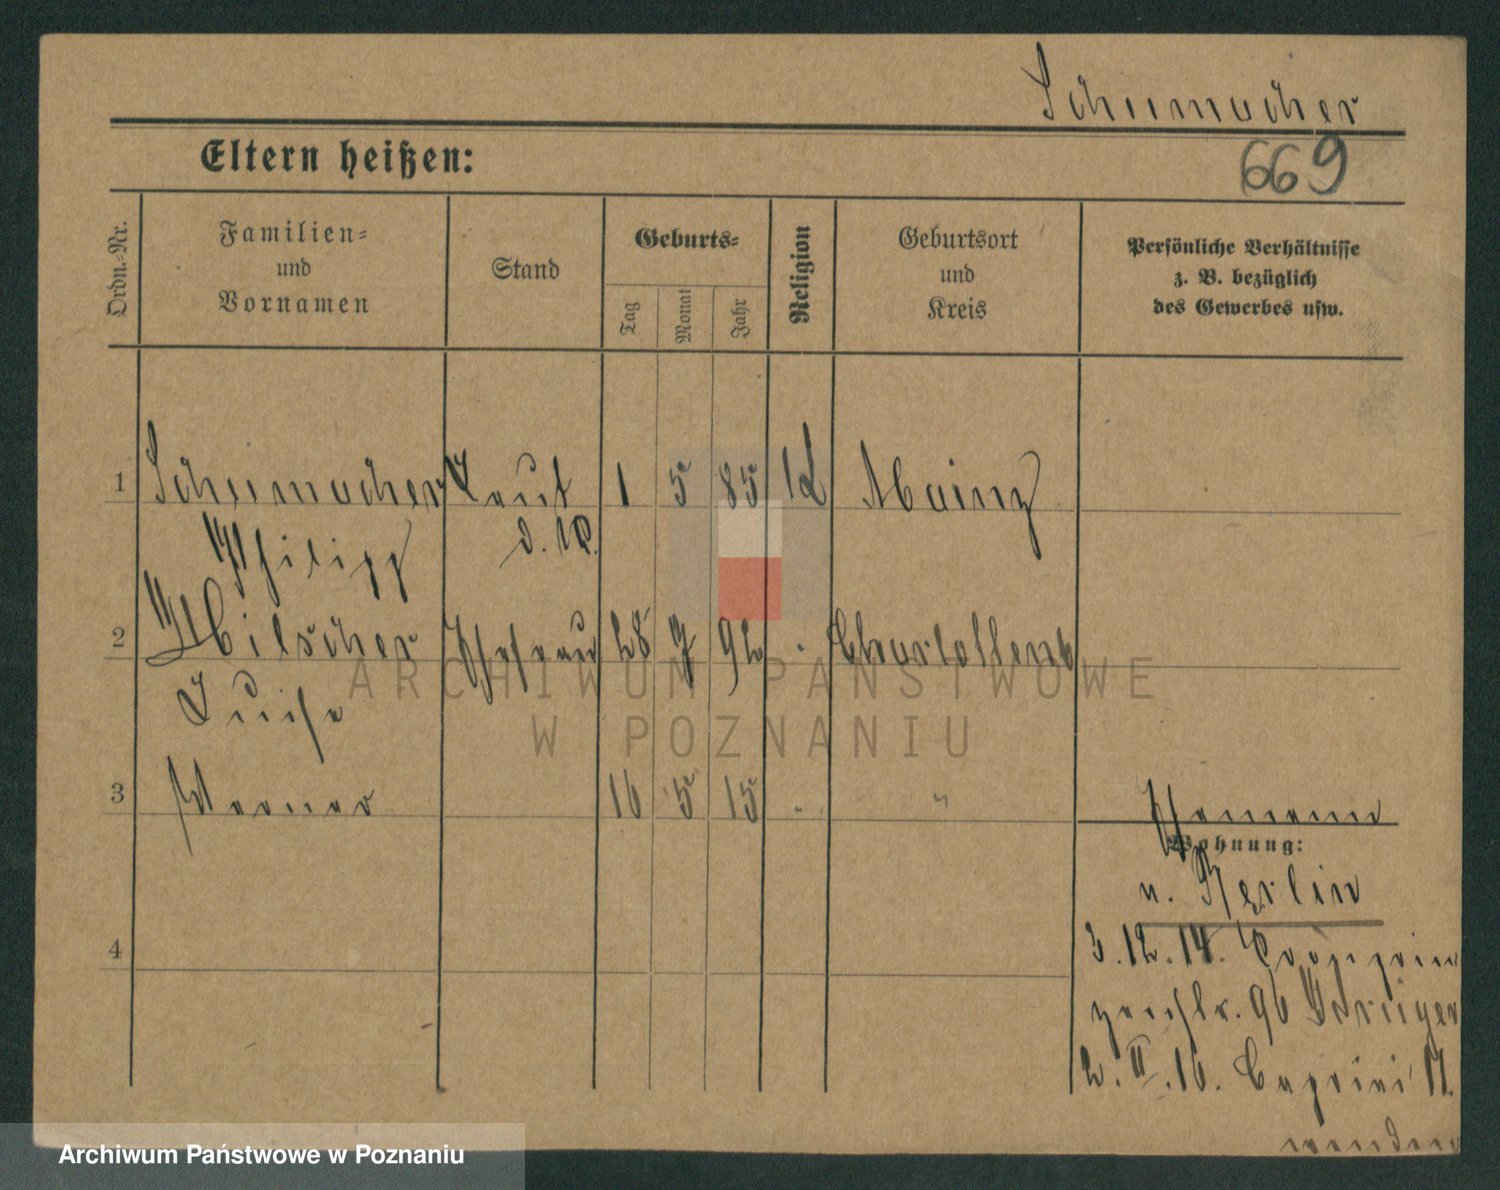 Schumacher
Eltern heißen:
669
Ordn.-Nr.
Familien-
und
Vornamen
Stand
Geburts-
Tag
Monat
Jahr
Religion
Geburtsort
und
Kreis
Persönliche Verhältnisse
z. B. bezüglich
des Gewerbes usw.
1 Schumacher Leut 1 5 85 Mainz
Philipp d. R.
2 Hilscher Ehefrau 28 7 92 Charlottenb
Luise
3 Werner 16 5 15 "
Wohnung:
v. Berlin
3.12.14. Kronprin
zenstr. 96 Krüger
4
2.II.16. Caprivi
wenden
ARCHIWUM PAŃSTWOWE
W POZNANIU
Archiwum Państwowe w Poznaniu